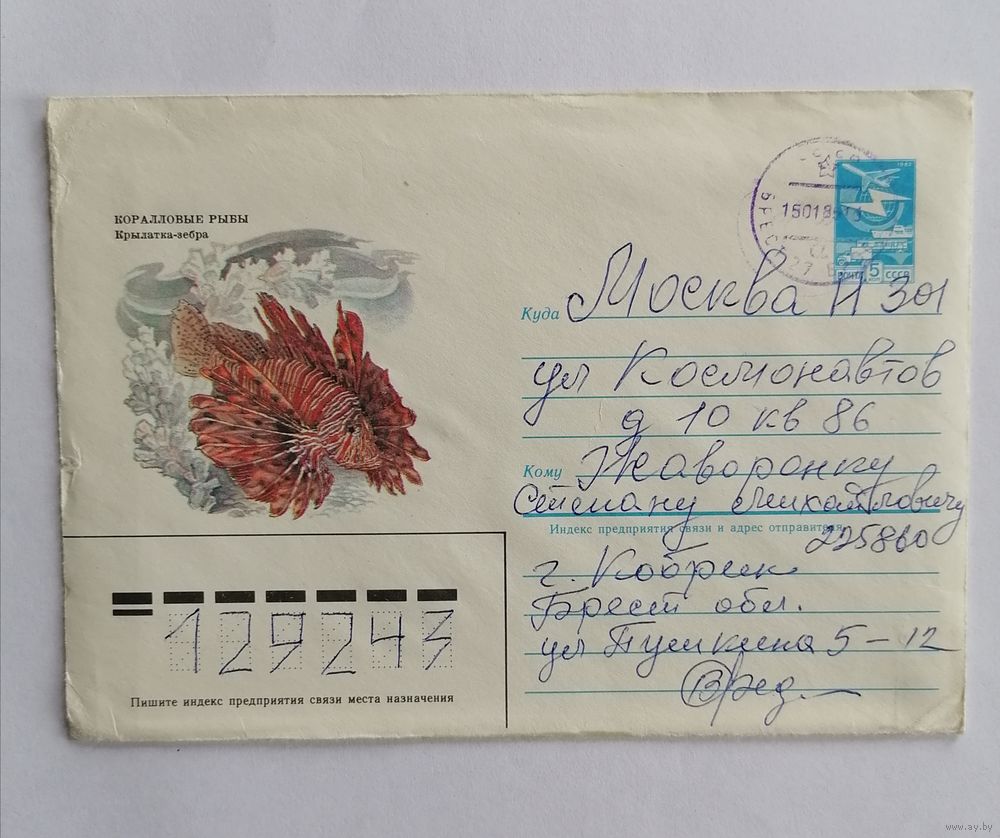 КОРАЛЛОВЫЕ РЫБЫ
Крылатка-зебра
1982
ПОЧТА 5 КОП СССР
Куда Москва И 301
ул Космонавтов
д 10 кв 86
Кому Жаворонку
Степану Михайловичу
Индекс предприятия связи и адрес отправителя
225860
г. Кобрин
Брест обл.
ул Пушкина 5-12
129243
Пишите индекс предприятия связи места назначения
www.ay.by